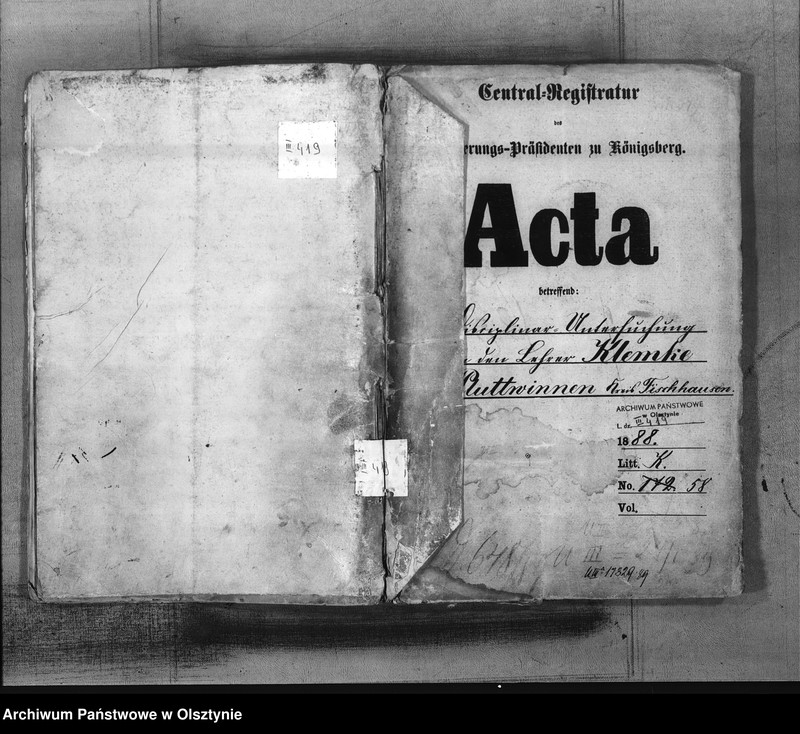 III 419
Central-Registratur
des
erungs-Präsidenten zu Königsberg.
Acta
betreffend:
Disciplinar-Untersuchung
den Lehrer Klemke
Kuttwinnen Kreis Fischhausen.
ARCHIWUM PAŃSTWOWE
w Olsztynie
L. dz. III 419
1888.
Litt. K.
No. 112 58
Vol.
III
17329
Archiwum Państwowe w Olsztynie